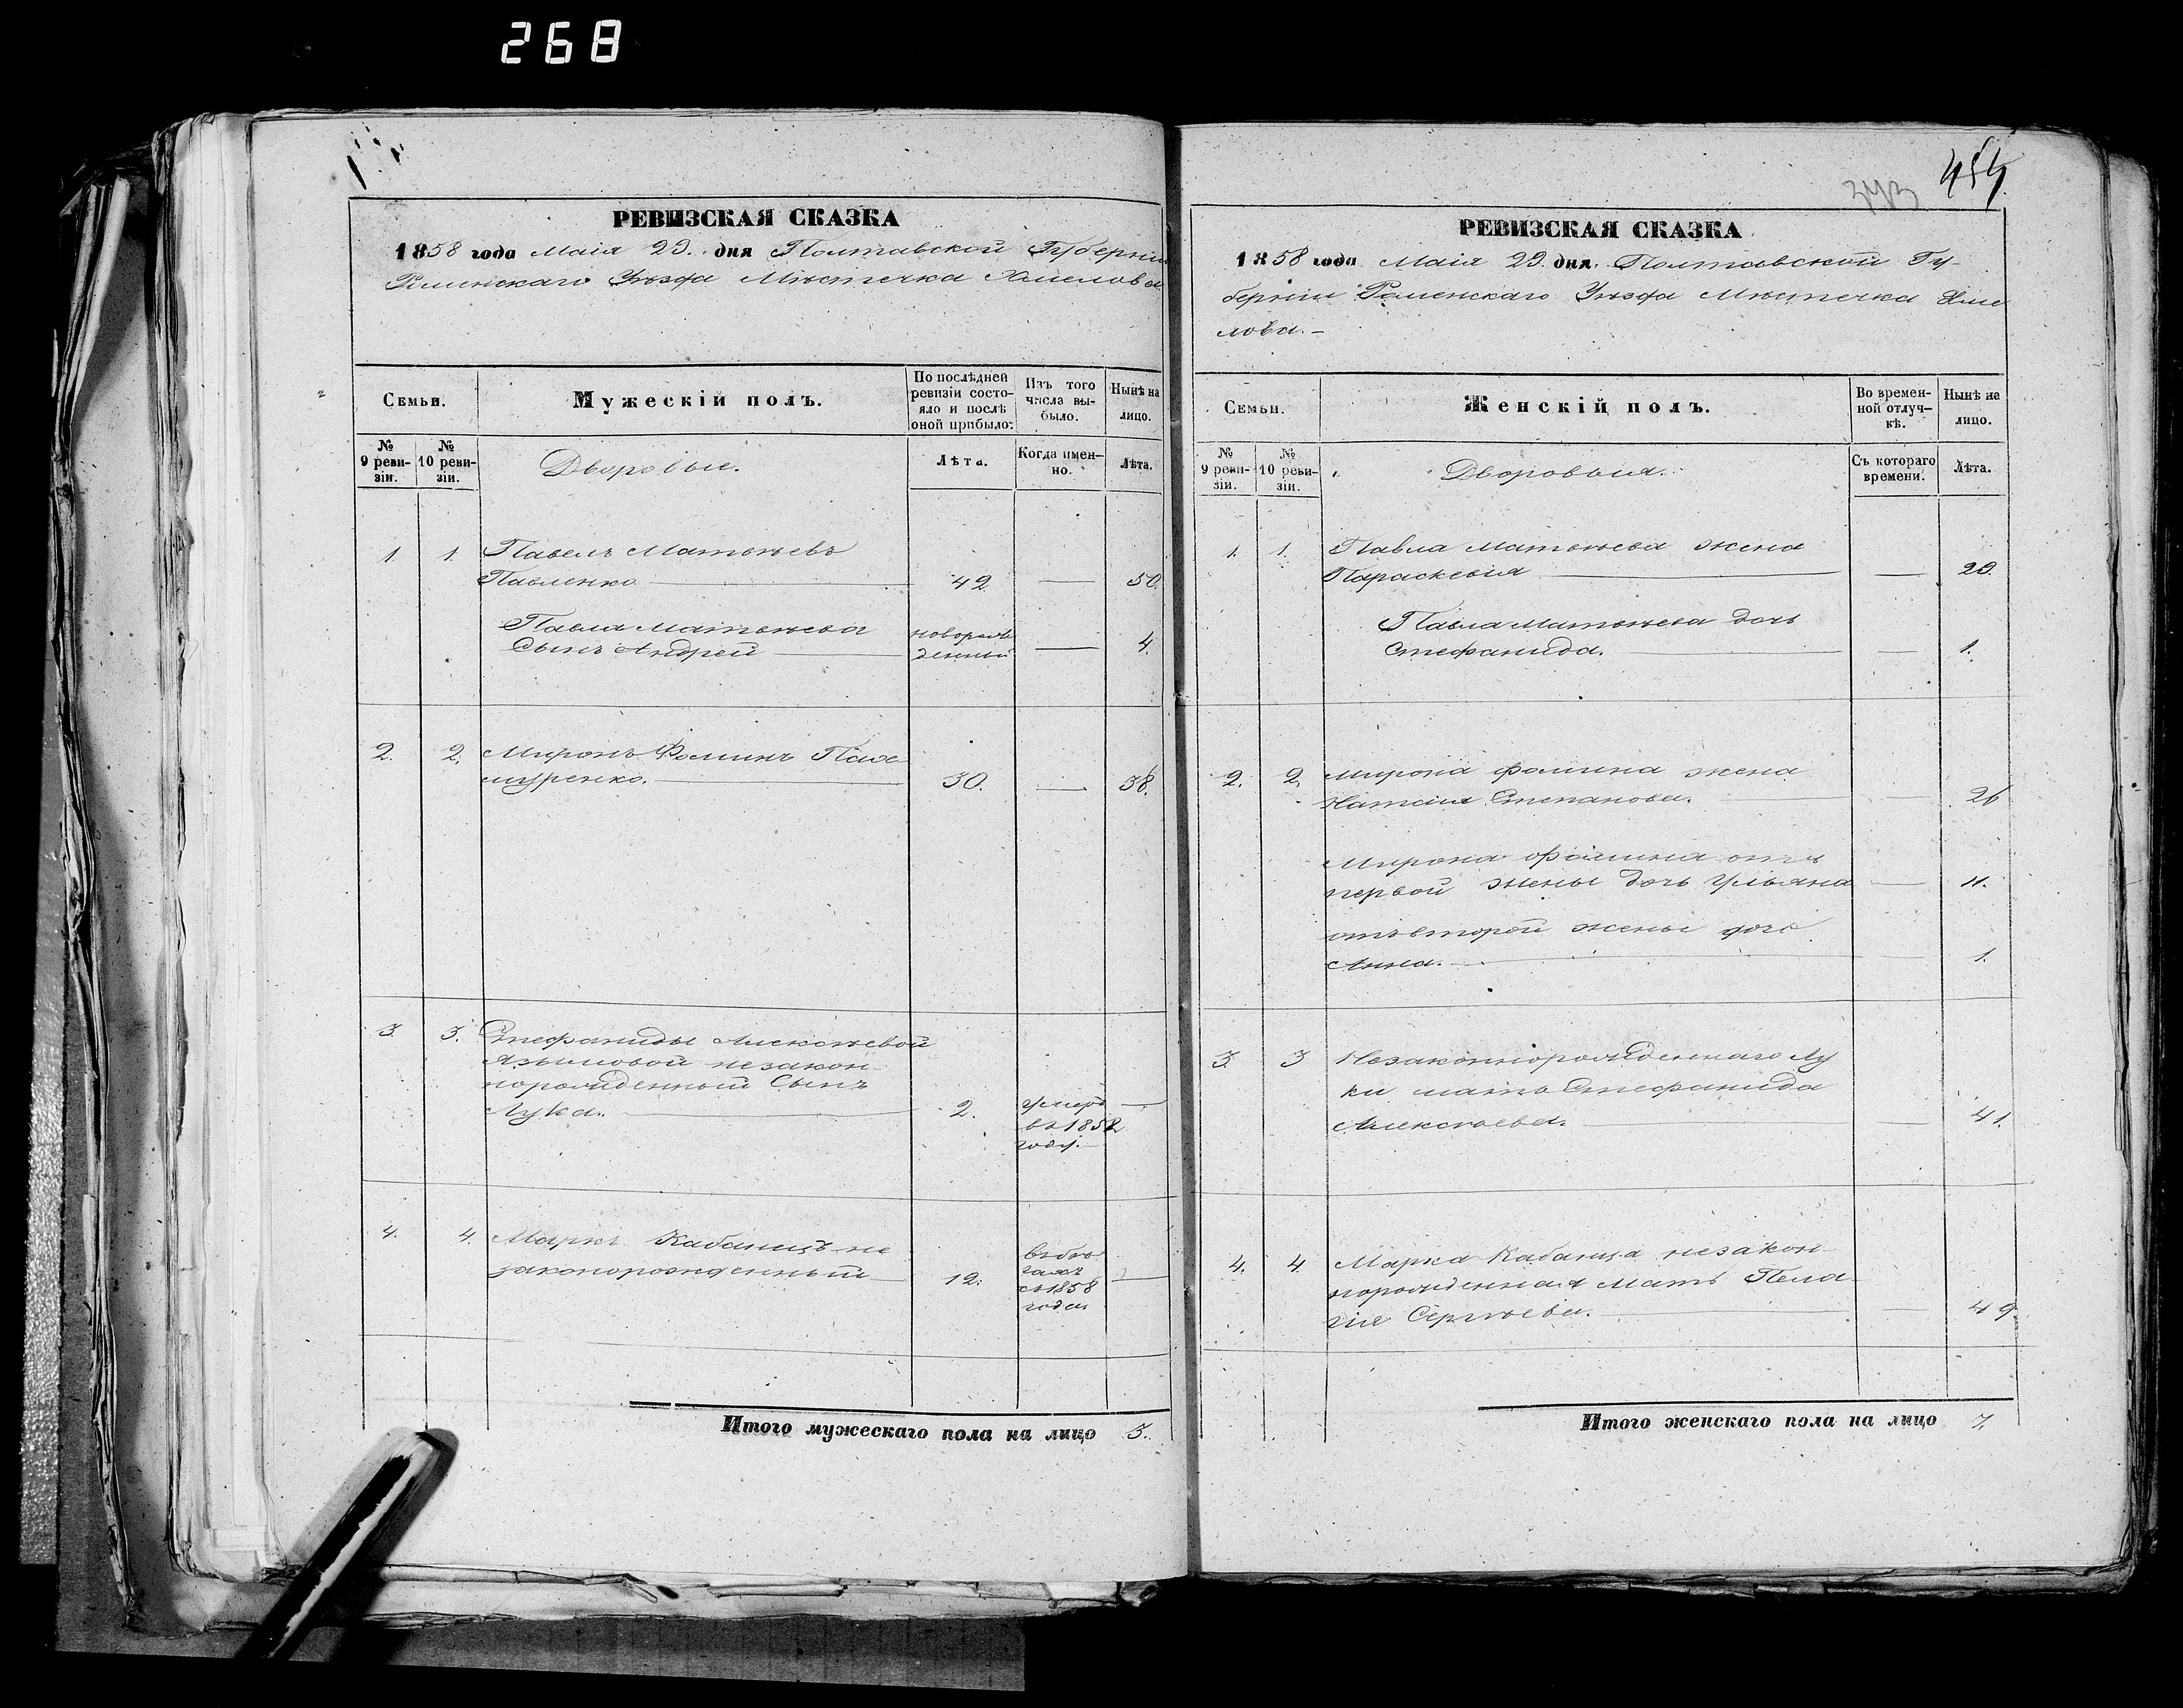 268
РЕВИЗСКАЯ СКАЗКА
1858 года Маія 29. дня Полтавской Губерніи
Роменскаго Уѣзда Мѣстечка Хмелова
Семьи.
Мужескій полъ.
По послѣдней ревизіи состояло и послѣ оной прибыло.
Изъ того числа выбыло.
Нынѣ на лицо.
№ 9 ревизіи.
№ 10 ревизіи.
Дворовые.
Лѣта.
Когда именно.
Лѣта.
1. 1. Павелъ Матвѣевъ
Павленко 42 — 50.
Павла Матвѣева новорож
Сынъ Андрей денный — 4.
2. 2. Миронъ Фоминъ
шуренко. 30. — 38.
3. 3. Стефаниды Алексѣевой
незакон-
норожденный Сынъ
Лука. 2. умеръ —
въ 1852
году.
4. 4. Маркъ Кабанецъ не
законорожденный 12. въ бѣ —
гахъ
съ 1858
года
Итого мужескаго пола на лицо 3.
454
РЕВИЗСКАЯ СКАЗКА
1858 года Маія 29. дня. Полтавской Гу-
берніи Роменскаго Уѣзда Мѣстечка Хме
лова.-
Семьи.
Женскій полъ.
Во времен-
ной отлуч-
кѣ.
Нынѣ на
лицо.
№ 9 ревизіи.
№ 10 ревизіи.
Дворовыя.
Съ котораго
времени.
Лѣта.
1. 1. Павла Матвѣева жена
Параскевія — 29.
Павла Матвѣева дочь
Стефанида. — 1.
2. 2. Мирона Фомина жена
Степанова. — 26
Мирона Фомина отъ
первой жены дочь Ульяна — 11.
отъ второй жены дочь
Анна. — 1.
3. 3 Незаконнорожденнаго Лу
ки мать Стефанида
Алексѣева. — 41.
4. 4. Марка Кабанца незакон-
норожденная Мать Пела
гія Сергѣева. 49.
Итого женскаго пола на лицо 7.